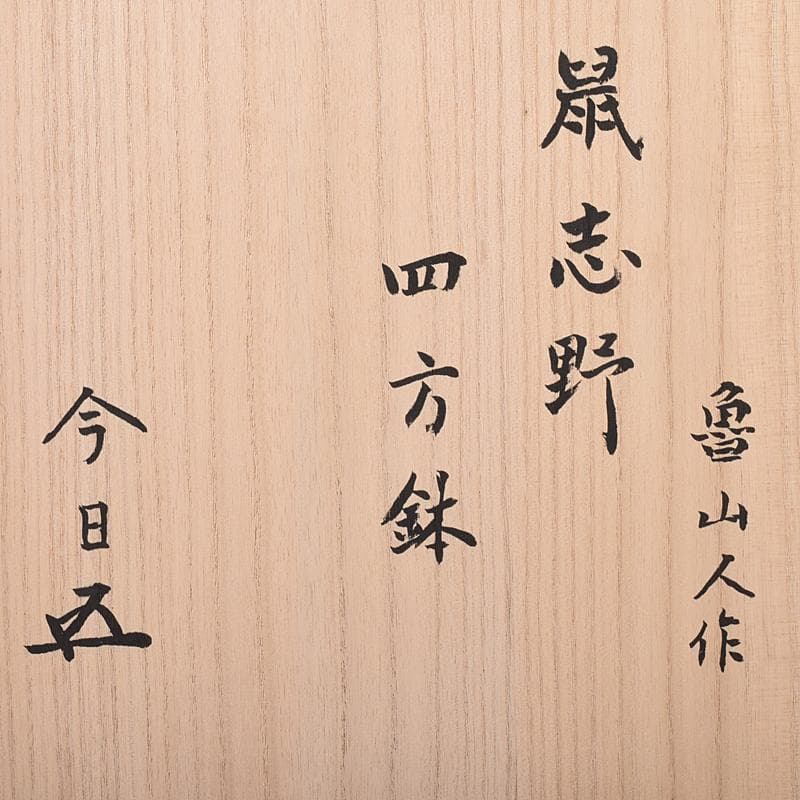 魯山人作
鼠志野
四方鉢
今日